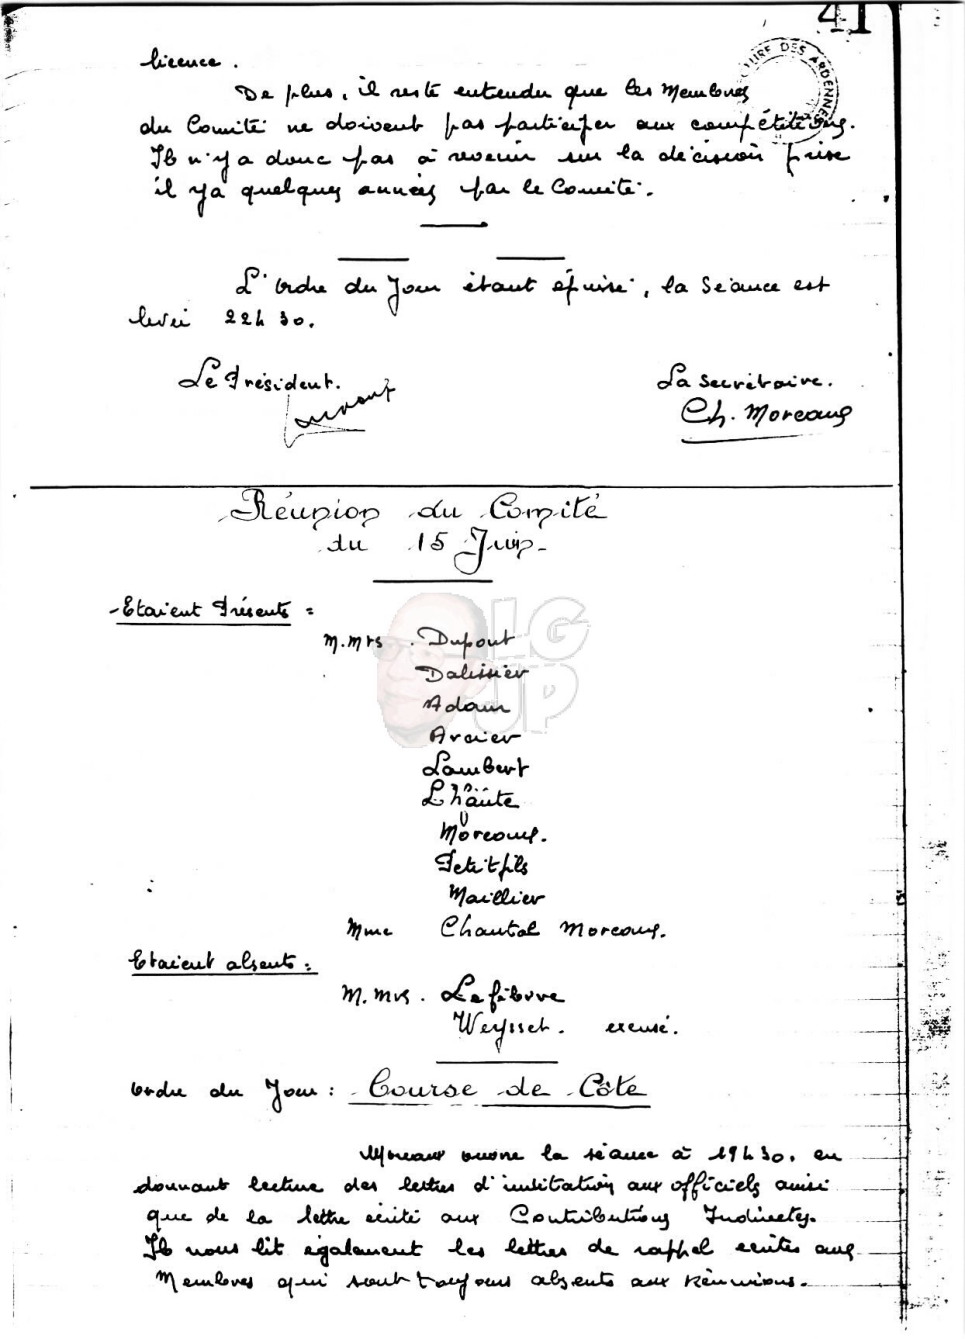 41
URE DES ARDENNES
licence.
De plus, il reste entendu que les Membres
du Comité ne doivent pas participer aux compétitions.
Il n'y a donc pas à revenir sur la décision prise
il y a quelques années par le Comité.
L'ordre du Jour étant épuisé, la Séance est
levée 22h30.
Le Président.
La Secrétaire.
Ch. Moreaux
Réunion du Comité
du 15 Juin
Etaient Présents :
M.Mrs. Dupont
Adam
Arcier
Lambert
Moreaux.
Petitfils
Maillier
Mme Chantal Moreaux.
Etaient absents :
M.Mrs. Lefebvre
Weysset. excusé.
Ordre du Jour : Course de Côte
Moreaux ouvre la séance à 19h30. en
donnant lecture des lettres d'invitation aux officiels ainsi
que de la lettre écrite aux Contributions Indirectes.
Il nous lit également les lettres de rappel écrites aux
Membres qui sont toujours absents aux Réunions.
LG
JP